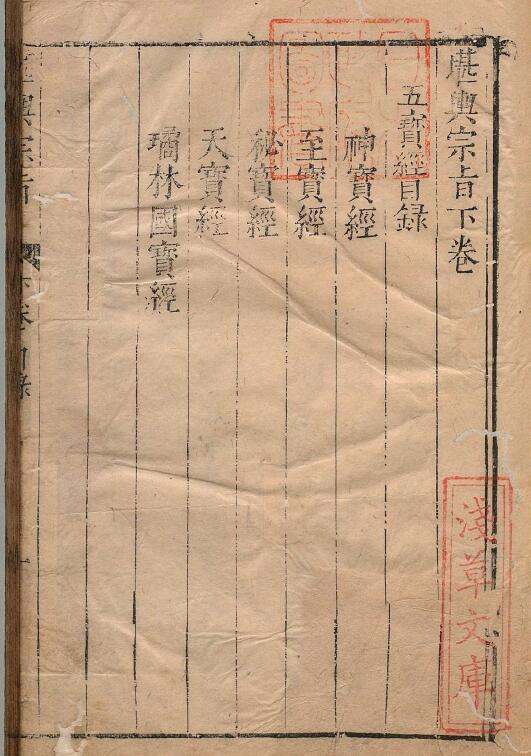 堪輿宗旨下卷
五寶經目録
神寶經
至寶經
秘寶經
天寶經
璚林國寶經
淺草文庫